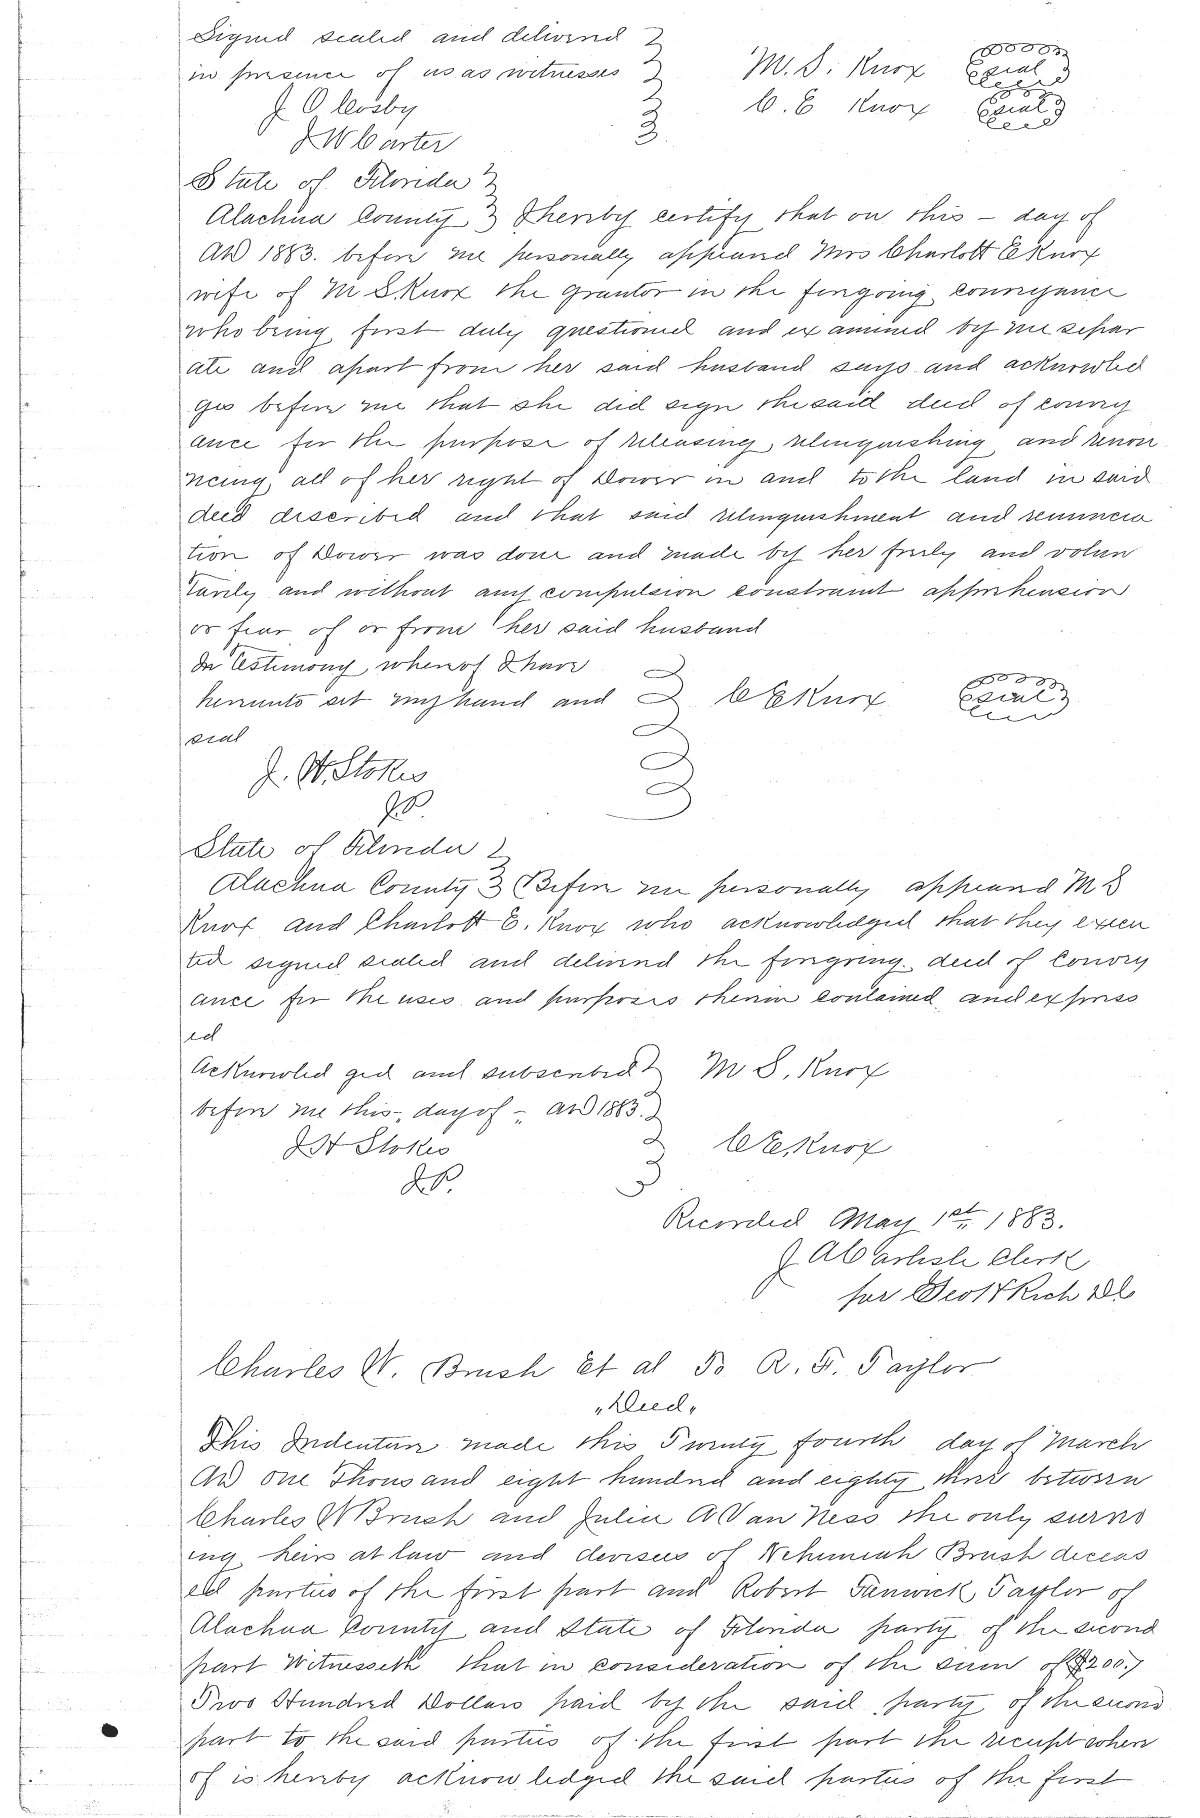 Signed sealed and delivered
in presence of us as witnesses M. S. Knox seal
J O Cosby C. E Knox seal
J W Carter
State of Florida
Alachua County I hereby certify that on this – day of
AD 1883. before me personally appeared Mrs Charlott E Knox
wife of M S Knox the grantor in the foregoing conveyance
who being first duly questioned and examined by me separ
ate and apart from her said husband says and acknowled
ges before me that she did sign the said deed of convey
ance for the purpose of releasing, relinquishing and renou
ncing all of her right of Dower in and to the land in said
deed described and that said relinquishment and renuncia
tion of Dower was done and made by her freely and volun
tarily and without any compulsion constraint apprehension
or fear of or from her said husband
In Testimony whereof I have
hereunto set my hand and C E Knox seal
seal
J. W. Stokes
J.P.
State of Florida
Alachua County Before me personally appeared M S
Knox and Charlott E. Knox who acknowledged that they execu
ted signed sealed and delivered the foregoing deed of Convey
ance for the uses and purposes therein contained and express
ed
Acknowled ged and subscribed M S. Knox
before me this – day of – AD 1883.
J W Stokes C E. Knox
J.P.
Recorded May 1st 1883.
J A Carlisle Clerk
for Geo F Rich DC
Charles W. Brush Et al To R. F. Taylor
"Deed"
This Indenture made this Twenty fourth day of March
AD one Thousand eight hundred and eighty three between
Charles W Brush and Julia A Van Ness the only survi
ing heirs at law and devisees of Nehemiah Brush deceas
ed parties of the first part and Robert Fenwick Taylor of
Alachua County and State of Florida party of the second
part Witnesseth that in consideration of the sum of $200.
Two Hundred Dollars paid by the said party of the second
part to the said parties of the first part the receipt where
of is hereby acknowledged the said parties of the first